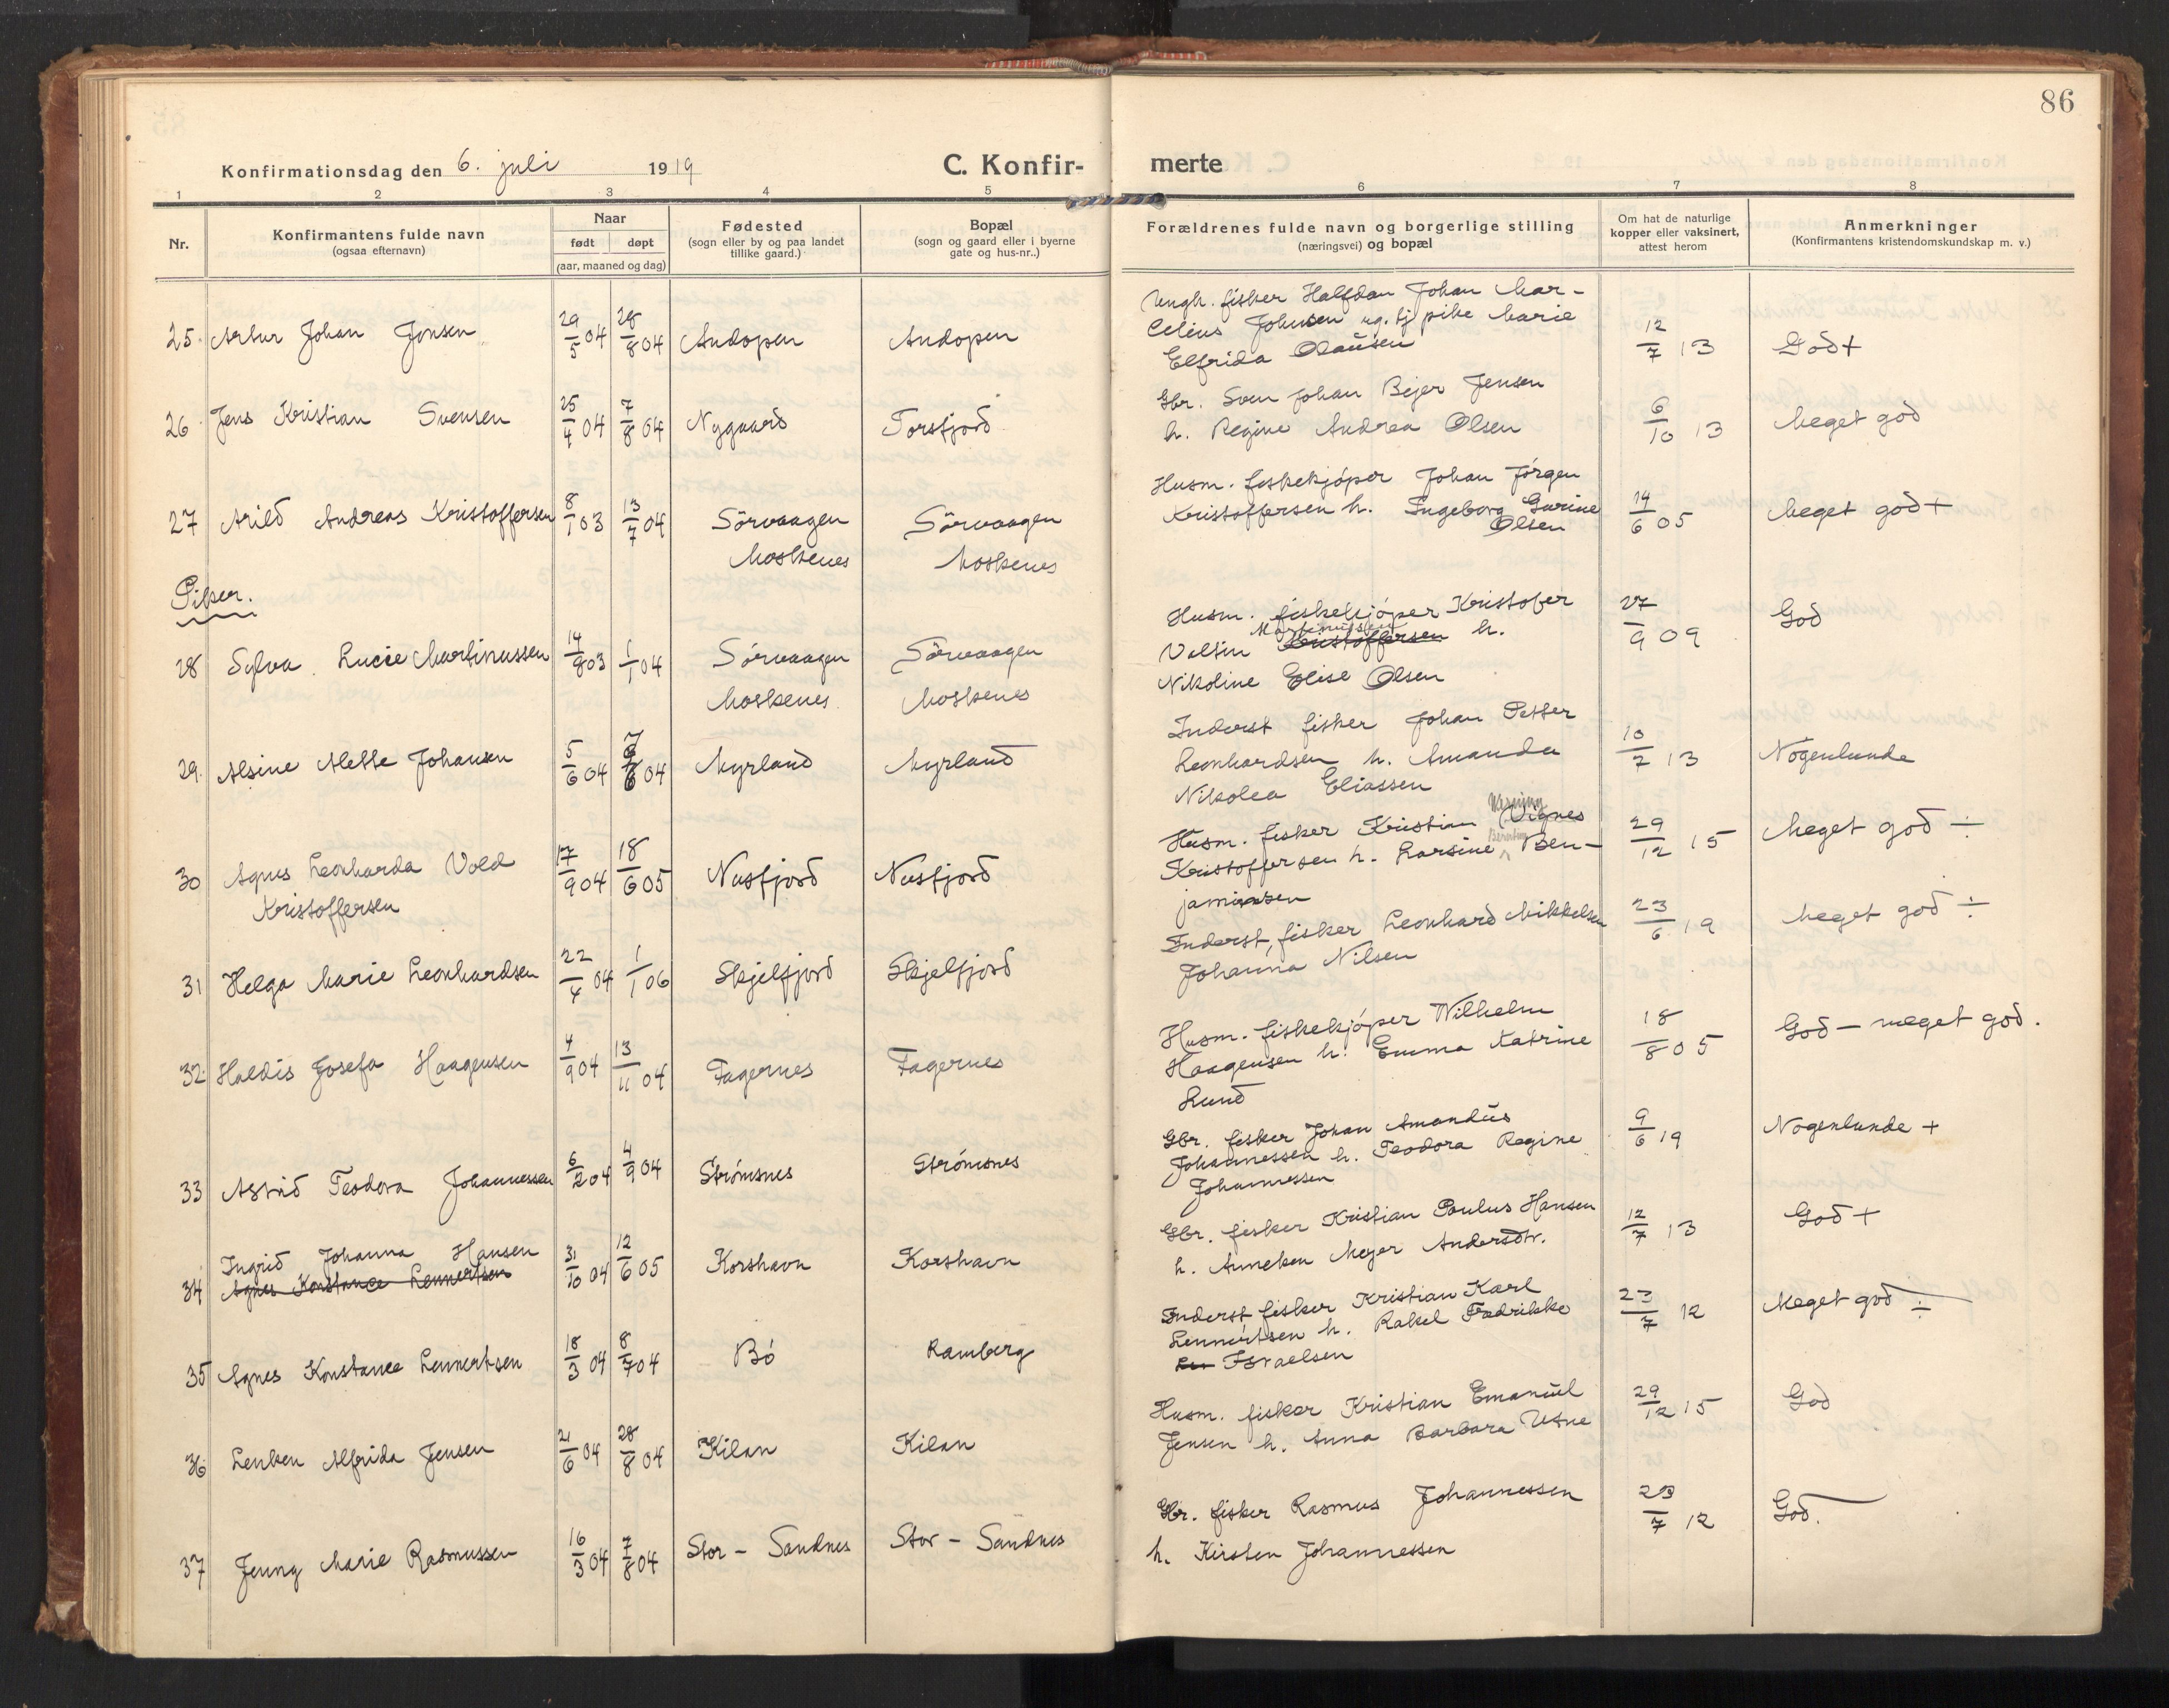 86
Konfirmationsdag den 6. juli 1919
C. Konfirmerte
1 2 3 4 5 6 7 8
Nr.
Konfirmantens fulde navn
(ogsaa efternavn)
Naar
født døpt
(aar, maaned og dag)
Fødested
(sogn eller by og paa landet
tillike gaard.)
Bopæl
(sogn og gaard eller i byerne
gate og hus-nr..)
Forældrenes fulde navn og borgerlige stilling
(næringsvei) og bopæl
Om hat de naturlige
kopper eller vaksinert,
attest herom
Anmerkninger
(Konfirmantens kristendomskundskap m. v.)
25. Artur Johan Jonsen 29/5 04 28/8 04 Andopen Andopen
Ungk. fisker Halfdan Johan Mar-
celius Johnsen og tj pike Marie
Elfrida Olausen
12/7 13 God +
26 Jens Kristian Svensen 25/4 04 7/8 04 Nygaard Torsfjord
Gbr. Sven Johan Bejer Jensen
h. Regine Andrea Olsen
6/10 13 Meget god
27 Arild Andreas Kristoffersen 8/1 03 13/7 04 Sörvaagen Sörvaagen
Moskenes Moskenes
Husm. fiskekjóper Johan Jórgen
Kristoffersen h. Ingeborg Gurine
Olsen
14/6 05 Meget god +
Piker.
28 Sylva Lucie Martinussen 14/8 03 1/1 04 Sörvaagen Sörvaagen
Moskenes Moskenes
Husm. fiskekjóper Kristofer
Martinussen
Valtin Kristoffersen h.
Nikoline Elise Olsen
27/9 09 God
29. Alsine Alette Johansen 5/6 04 7/8 04 Myrland Myrland
Inderst fisker Johan Petter
Leonhardsen h. Amanda
Nikolea Eliassen
10/7 13 Nogenlunde
30 Agnes Leonharda Vold
Kristoffersen
17/9 04 18/6 05 Nusfjord Nusfjord
Husm. fisker Kristian Vignes
Kristoffersen h. Larsine Ben-
jaminsen
29/12 15 Meget god ÷
31 Helga Marie Leonhardsen 22/4 04 1/1 06 Skjelfjord Skjelfjord
Inderst, fisker Leonhard Mikkelsen
Johanna Nilsen
23/6 19 Meget god ÷
32. Haldis Josefa Haagensen 4/9 04 13/11 04 Fagernes Fagernes
Husm. fiskekjóper Wilhelm
Haagensen h. Emma Katrine
Lund
18/8 05 God - meget god.
33 Astrid Teodora Johannessen 6/2 04 4/9 04 Strómsnes Strómsnes
Gbr. fisker Johan Amandus
Johannessen h. Teodora Regine
Johannessen
9/6 19 Nogenlunde +
Ingrid Johanna Hansen
34 Agnes Konstance Lennertsen 31/10 04 12/6 05 Korshavn Korshavn
Gbr. fisker Kristian Paulus Hansen
h. Anneken Meyer Andersdtr.
12/7 13 God +
35 Agnes Konstance Lennertsen 18/3 04 8/7 04 Bó Ramberg
Inderst fisker Kristian Karl
Lennertsen h. Rakel Fredrikke
Israelsen
23/7 12 Meget god ÷
36. Lenken Alfrida Jensen 21/6 04 28/8 04 Kilan Kilan
Husm. fisker Kristian Emanuel
Jensen h. Anna Barbara Utne
29/12 15 God
37 Jenny Marie Rasmussen 16/3 04 7/8 04 Stor - Sandnes Stor - Sandnes
Gbr. fisker Rasmus Johannessen
h. Kirsten Johannessen
23/7 12 God.